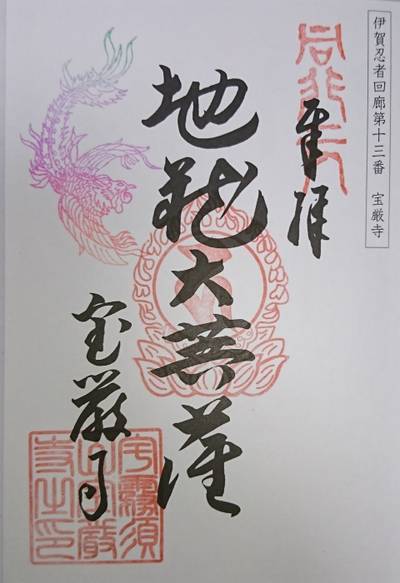 伊賀忍者回廊第十三番 宝厳寺
奉拝
地蔵大菩薩
宝厳寺